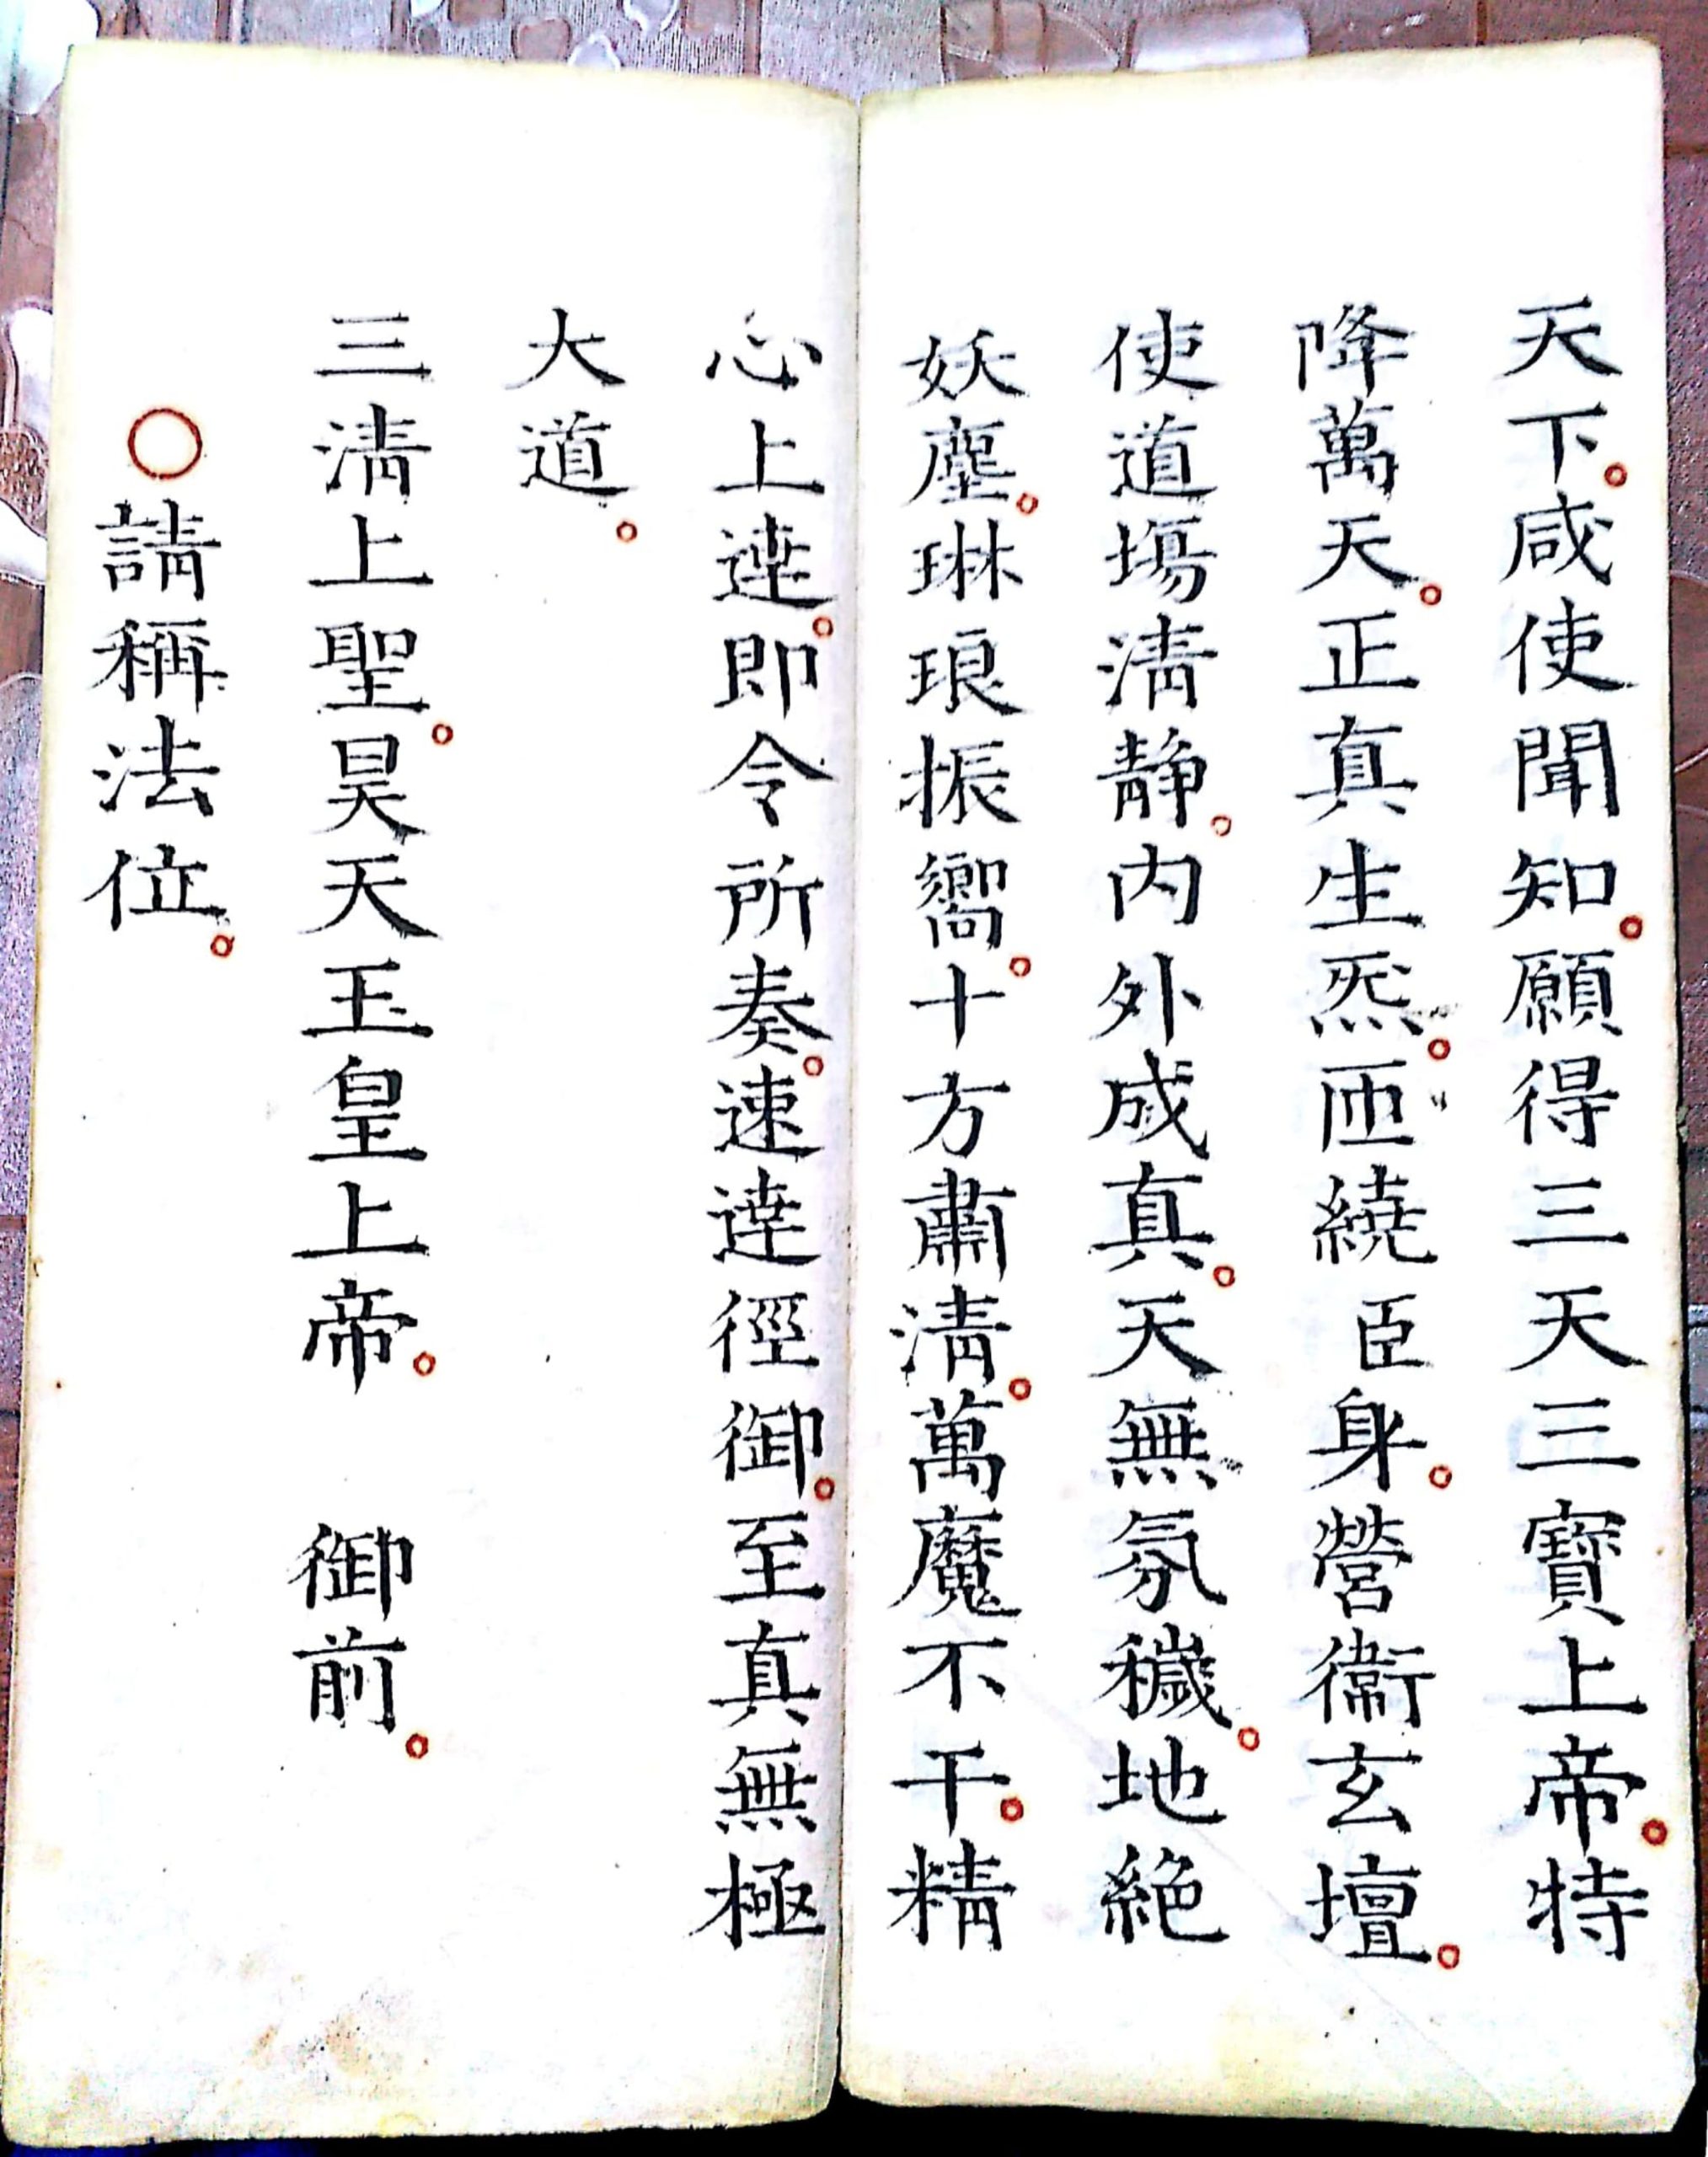 天下。咸使聞知。願得三天三寶上帝。特
降萬天。正真生炁。匝繞臣身。營衛玄壇。
使道塲清静。内外成真。天無氛穢。地絶
妖塵。琳琅振嚮。十方肅清。萬魔不干。精
心上達。即令所奏。速達徑御。至真無極
大道。
三清上聖。昊天玉皇上帝。 御前。
○請稱法位。